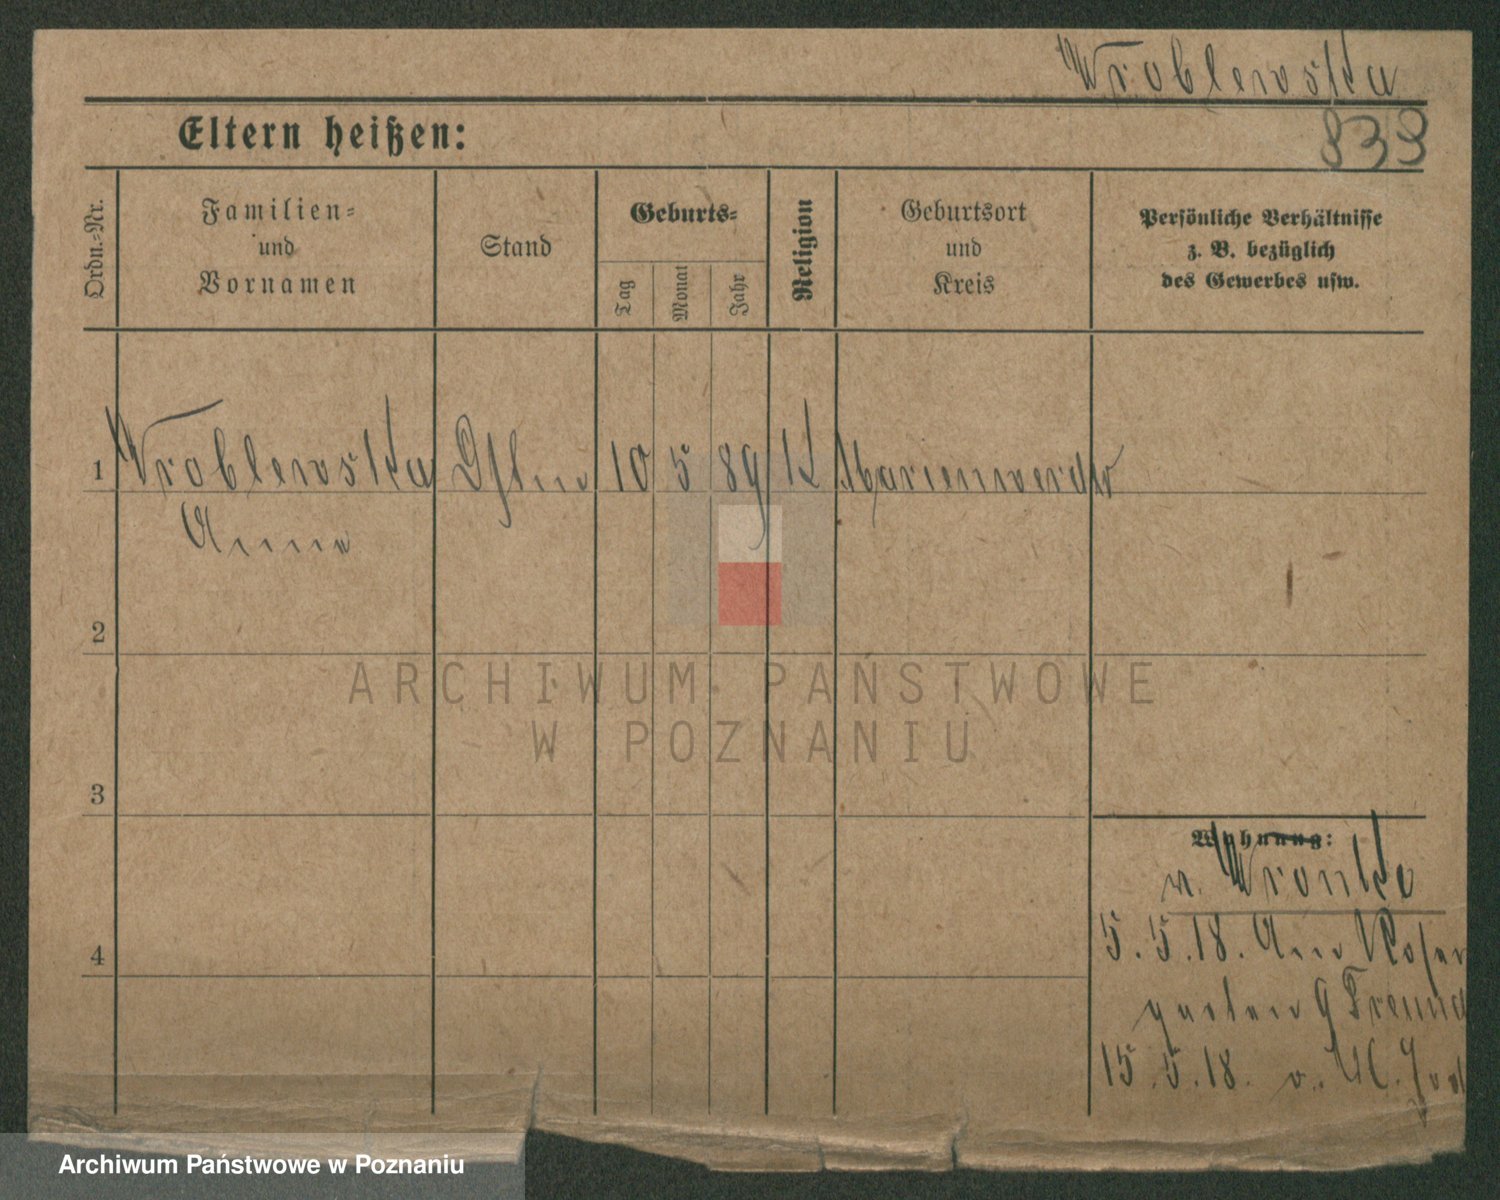 Wroblewska
Eltern heißen:
839
Ordn.-Nr.
Familien-
und
Vornamen
Stand
Geburts-
Tag
Monat
Jahr
Religion
Geburtsort
und
Kreis
Persönliche Verhältnisse
z. B. bezüglich
des Gewerbes usw.
1 Wroblewska 10 5 89 K Marienwerder
Anna
2
3
4
Wohnung:
n. Wronke
5.5.18. Am Rosen
garten 9 Freund
15.5.18. v.
ARCHIWUM PAŃSTWOWE
W POZNANIU
Archiwum Państwowe w Poznaniu